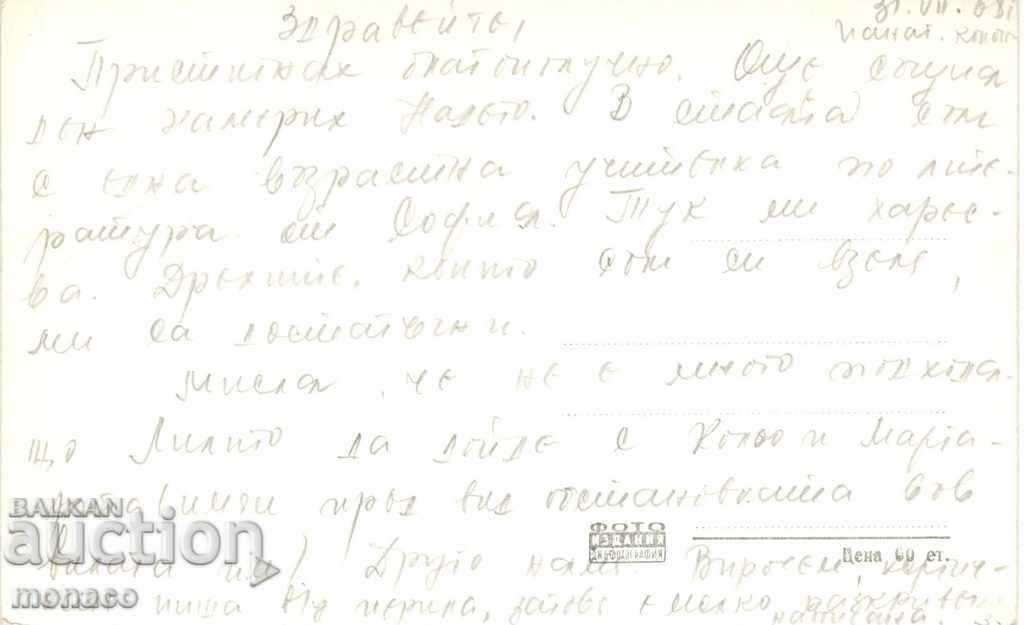 31.VII.68г.
Здравейте,
Пристигнах благополучно. Още същия
ден намерих Надето. В стаята съм
с една възрастна учителка по лите-
ратура от София. Тук ми харес-
ва. Дрехите, които съм си взела,
ми са достатъчни.
Мисля, че не е много подходя-
що Лилито да дойде с Кольо и Марга-
имайки пред вид обстановката във
Друго няма. Впрочем,
пиша на перила, затова е малко
написана.
ФОТО
ИЗДАНИЯ
ДК "ФОТОГРАФИЯ"
Цена 60 ст.
BALKAN
auction
monaco